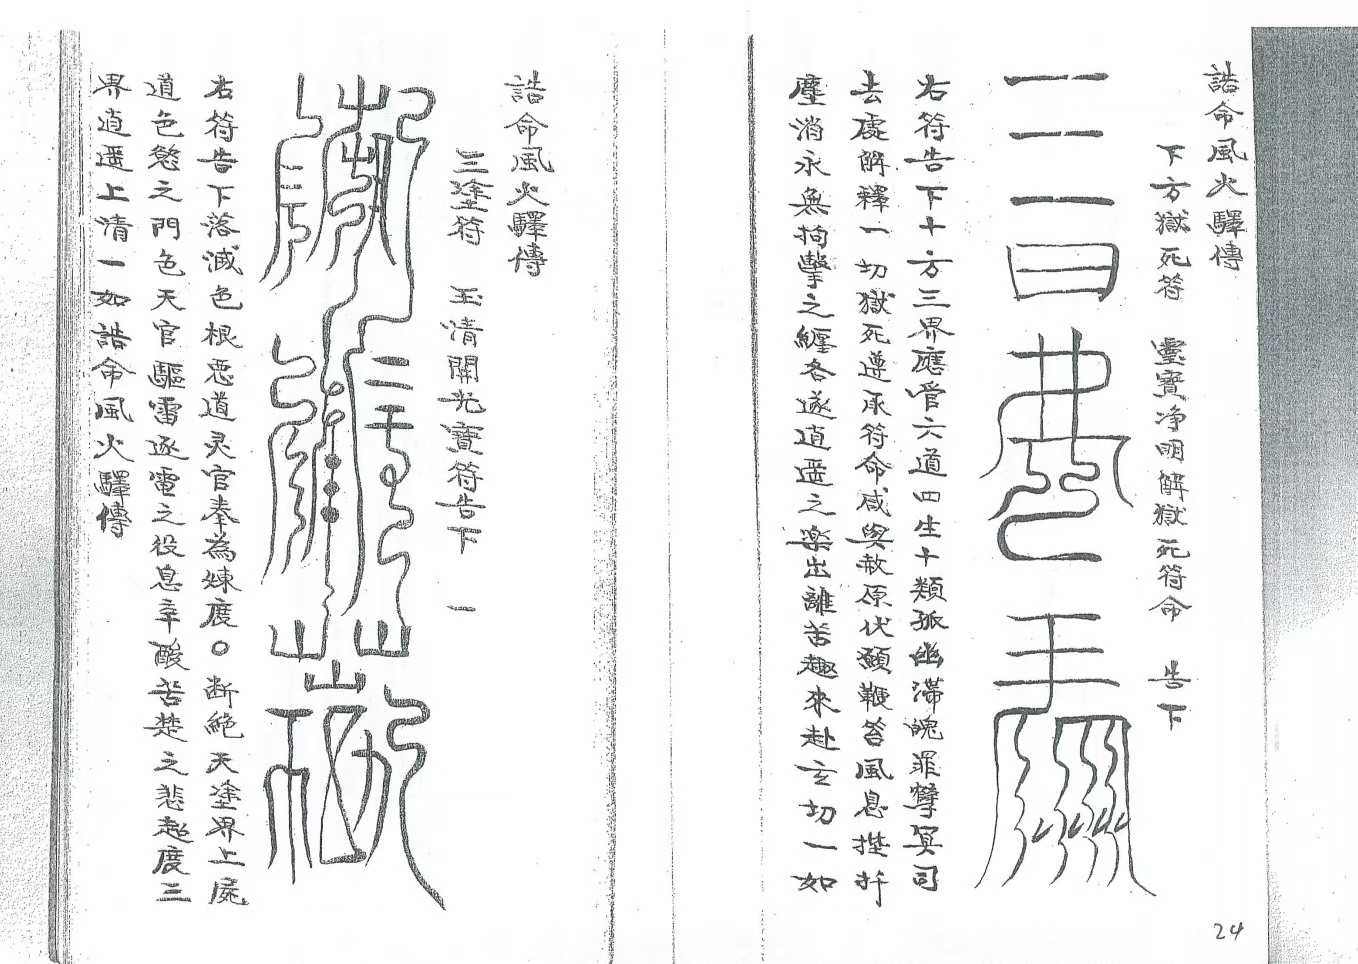 誥命風火驛傳
下方獄死符　靈寶淨明解獄死符命　告下
右符告下十方三界應管六道四生十類孤幽滯魄罪孽冥司
去處解釋一切獄死遵承符命咸與赦原伏願鞭笞風息捶扑
塵消永無拘擊之纏各遂逍遥之樂出離苦趣來赴玄切一如
24
誥命風火驛傳
三塗符　玉清開光寶符告下　一
右符告下落滅色根惡道灵官奉為煉度〇断絶天塗界上屍
道色慾之門色天官驅雷逐電之役息辛酸苦楚之悲超度三
界逍遥上清一如誥命風火驛傳